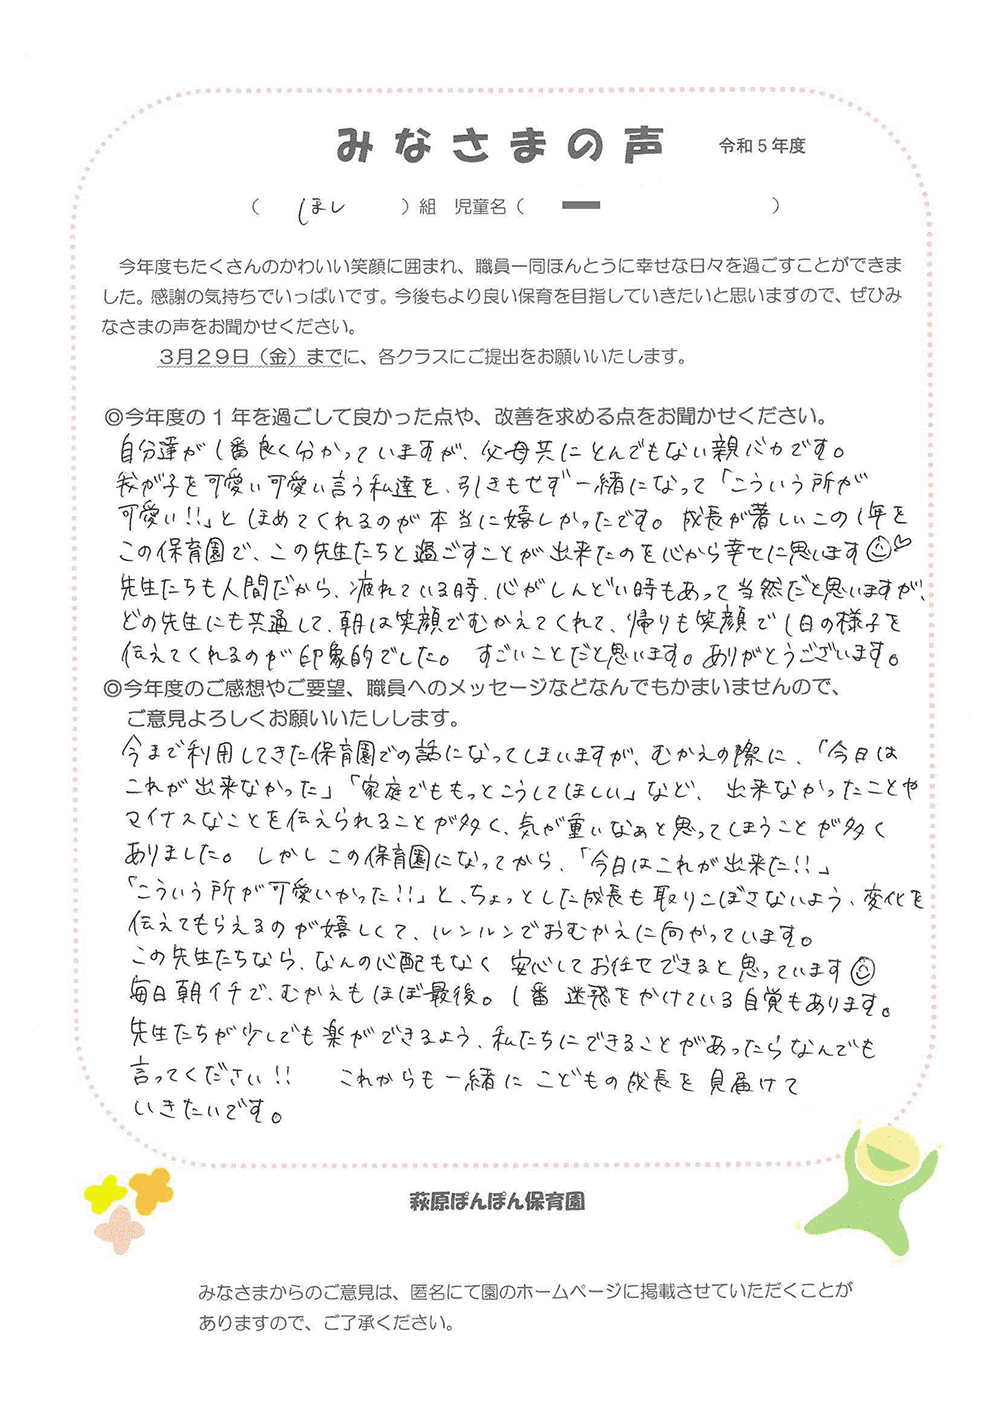 みなさまの声 令和5年度
（ ほし ）組 児童名（ ）
今年度もたくさんのかわいい笑顔に囲まれ、職員一同ほんとうに幸せな日々を過ごすことができま
した。感謝の気持ちでいっぱいです。今後もより良い保育を目指していきたいと思いますので、ぜひみ
なさまの声をお聞かせください。
３月２９日（金）までに、各クラスにご提出をお願いいたします。
◎今年度の１年を過ごして良かった点や、改善を求める点をお聞かせください。
自分達が1番良く分かっていますが、父母共にとんでもない親バカです。
我が子を可愛い可愛い言う私達を、引きもせず一緒になって「こういう所が
可愛い!!」とほめてくれるのが本当に嬉しかったです。成長が著しいこの1年を
この保育園で、この先生たちと過ごすことが出来たのを心から幸せに思います
先生たちも人間だから、疲れている時、心がしんどい時もあって当然だと思いますが、
どの先生にも共通して、朝は笑顔でむかえてくれて、帰りも笑顔で1日の様子を
伝えてくれるのが印象的でした。すごいことだと思います。ありがとうございます。
◎今年度のご感想やご要望、職員へのメッセージなどなんでもかまいませんので、
ご意見よろしくお願いいたしします。
今まで利用してきた保育園での話になってしまいますが、むかえの際に、「今日は
これが出来なかった」「家庭でももっとこうしてほしい」など、出来なかったことや
マイナスなことを伝えられることが多く、気が重いなぁと思ってしまうことが多く
ありました。しかしこの保育園になってから、「今日はこれが出来た!!」
「こういう所が可愛いかった!!」と、ちょっとした成長も取りこぼさないよう、変化を
伝えてもらえるのが嬉しくて、ルンルンでおむかえに向かっています。
この先生たちなら、なんの心配もなく安心してお任せできると思っています
毎日朝イチで、むかえもほぼ最後。1番迷惑をかけている自覚もあります。
先生たちが少しでも楽ができるよう、私たちにできることがあったらなんでも
言ってください!! これからも一緒にこどもの成長を見届けて
いきたいです。
萩原ぽんぽん保育園
みなさまからのご意見は、匿名にて園のホームページに掲載させていただくことが
ありますので、ご了承ください。